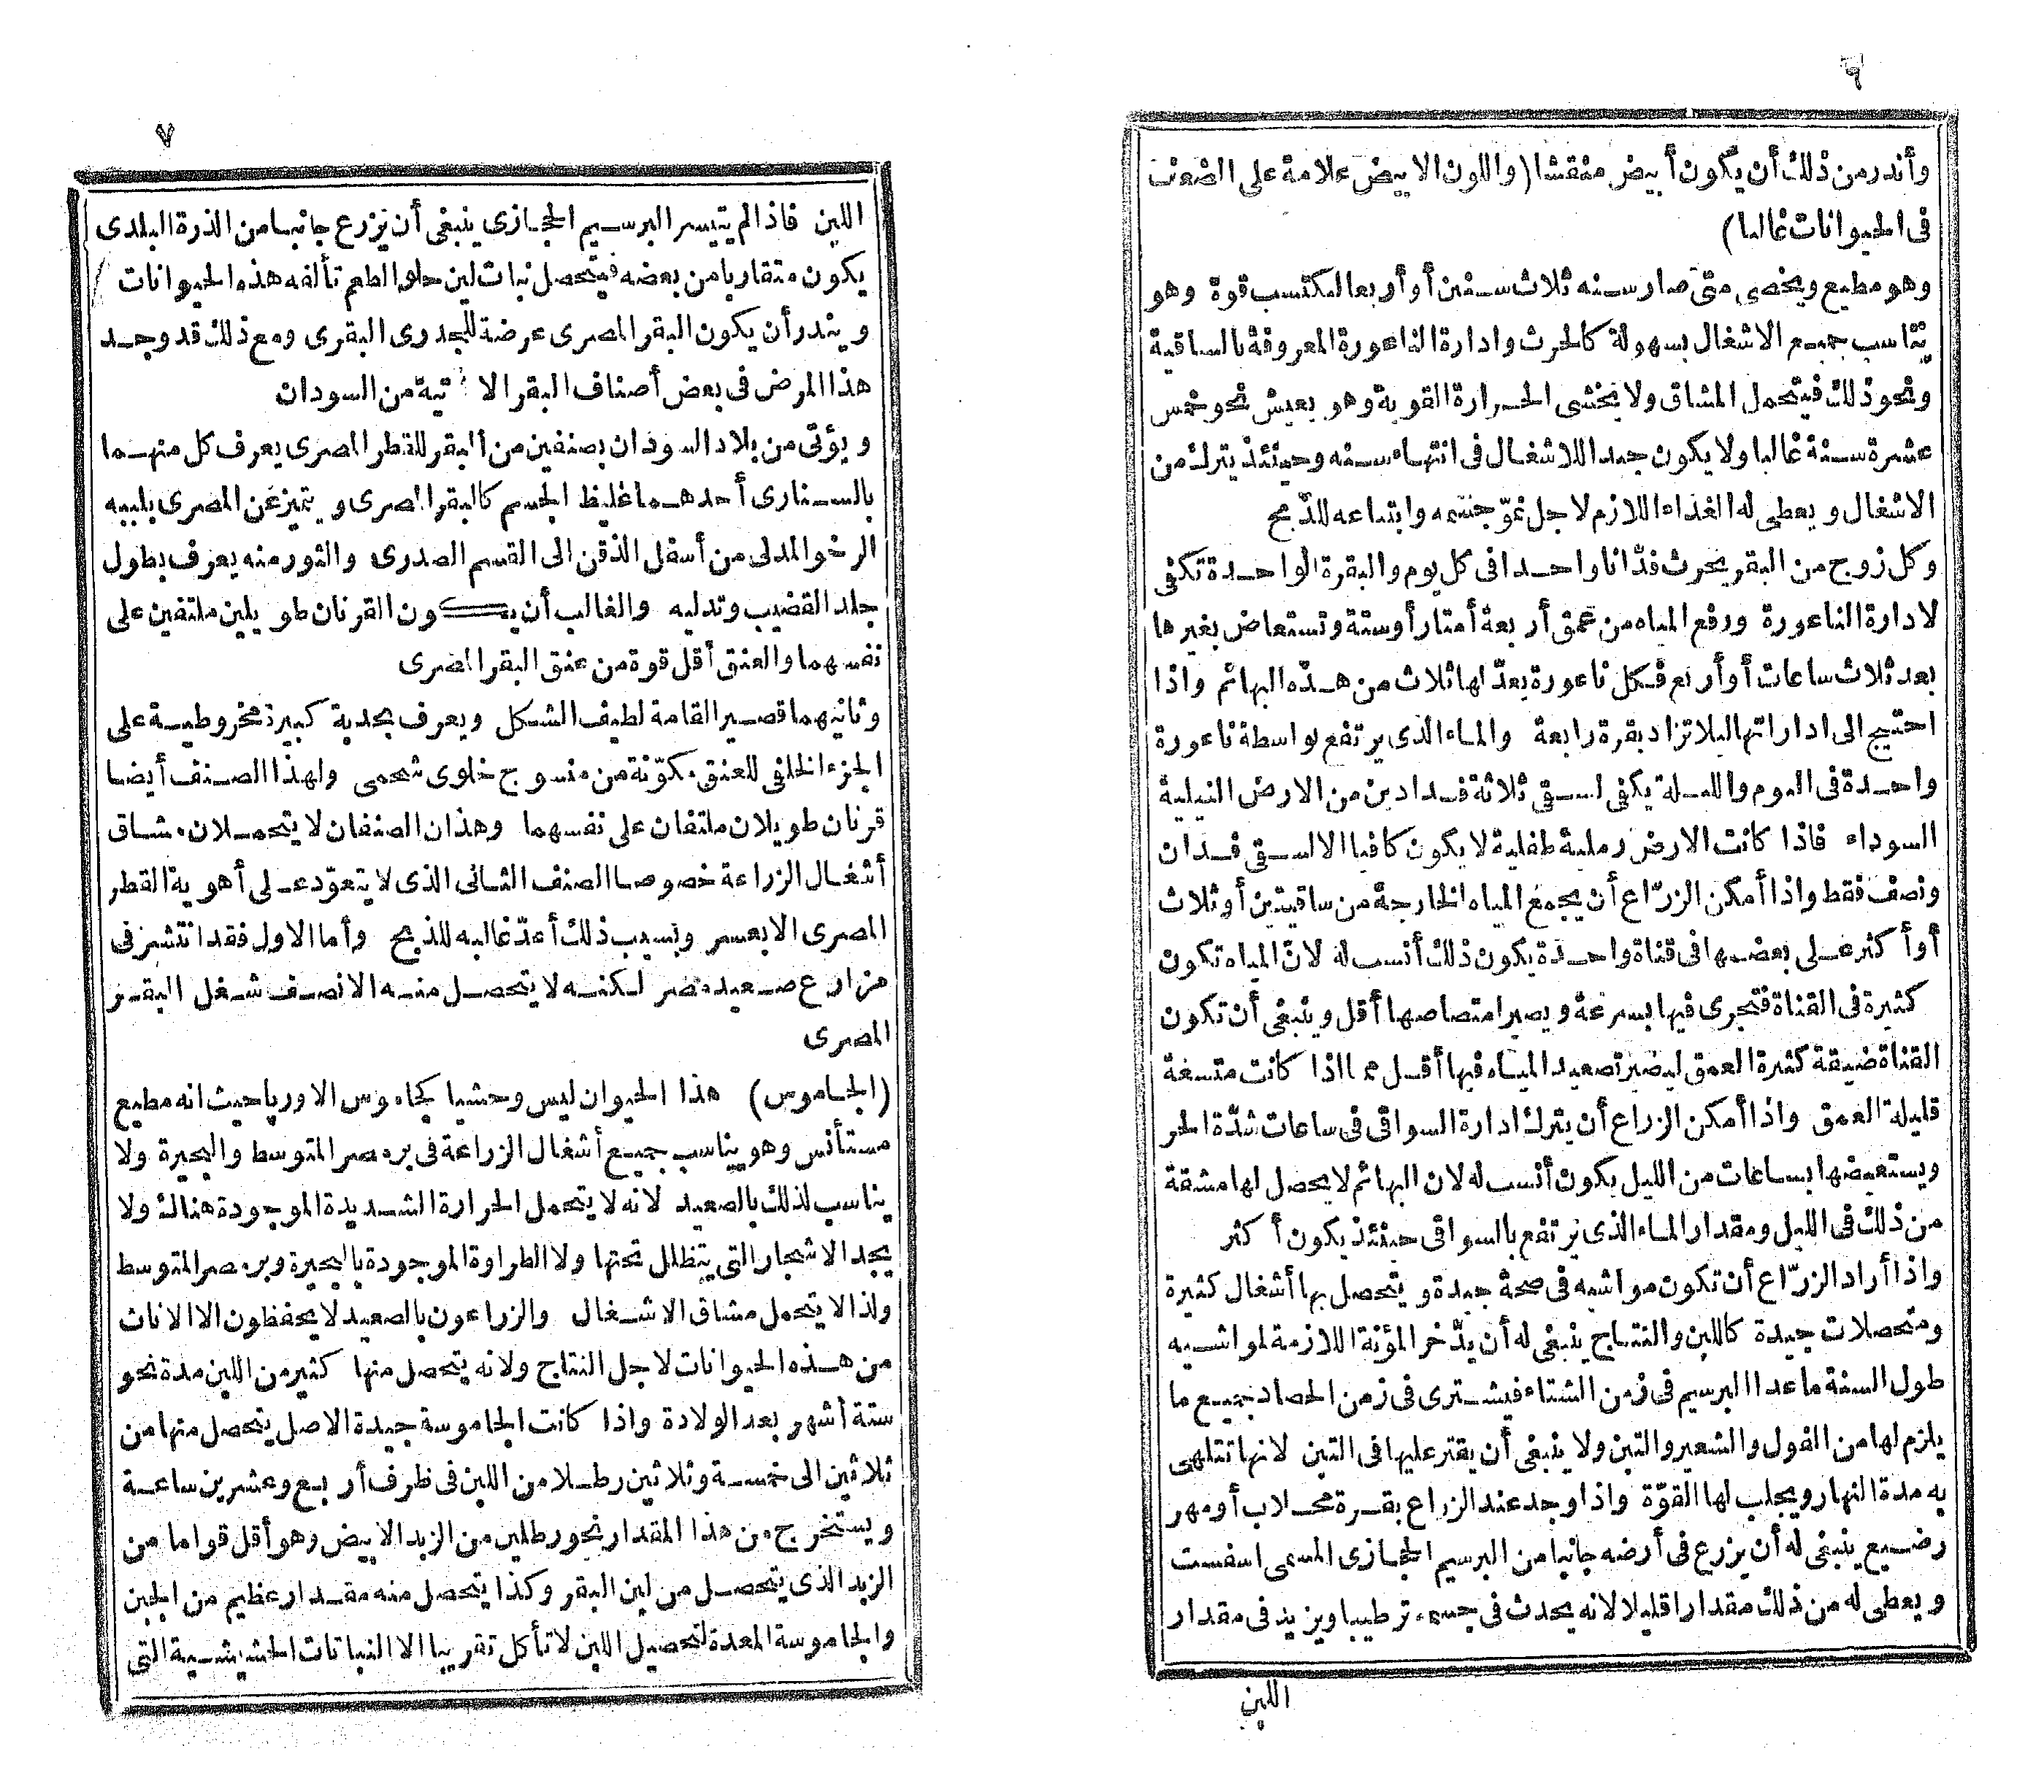 ٦
وأندر من ذلك أن يكون أبيض منقشا (واللون الابيض علامة على الضعف
فى الحيوانات غالبا)
وهو مطيع ويخصى متى صار سنه ثلاث سنين أو أربعا ليكتسب قوة وهو
يناسب جميع الاشغال بسهولة كالحرث وادارة الناعورة المعروفة بالساقية
ونحو ذلك فيتحمل المشاق ولا يخشى الحرارة القوية وهو يعيش نحو خمس
عشرة سنة غالبا ولا يكون جيد اللاشغال فى انتهاء سنه وحينئذ يترك من
الاشغال ويعطى له الغذاء اللازم لاجل نموّ جسمه وابتياعه للذبح
وكل زوج من البقر يحرث فدّانا واحدا فى كل يوم والبقرة الواحدة تكفى
لادارة الناعورة ورفع المياه من عمق أربعة أمتار أو ستة وتستعاض بغيرها
بعد ثلاث ساعات أو أربع فكل ناعورة يعدّ لها ثلاث من هذه البهائم واذا
احتيج الى ادارتها ليلا تزاد بقرة رابعة والماء الذى يرتفع بواسطة ناعورة
واحدة فى اليوم والليلة يكفى لسقى ثلاثة فدادين من الارض النيلية
السوداء فاذا كانت الارض رملية طفلية لا يكون كافيا الا لسقى فدان
ونصف فقط واذا أمكن الزرّاع أن يجمع المياه الخارجة من ساقيتين أو ثلاث
أو أكثر على بعضها فى قناة واحدة يكون ذلك أنسب له لان المياه تكون
كثيرة فى القناة فتجرى فيها بسرعة ويصير امتصاصها أقل وينبغى أن تكون
القناة ضيقة كثيرة العمق ليصير تصعيد المياه فيها أقل مما اذا كانت متسعة
قليلة العمق واذا أمكن الزراع أن يترك ادارة السواقى فى ساعات شدّة الحر
ويستعيضها بساعات من الليل يكون أنسب له لان البهائم لا يحصل لها مشقة
من ذلك فى الليل ومقدار الماء الذى يرتفع بالسواقى حينئذ يكون أكثر
واذا أراد الزرّاع أن تكون مواشيه فى صحة جيدة ويتحصل بها أشغال كثيرة
ومتحصلات جيدة كاللبن والنتاج ينبغى له أن يدّخر المؤنة اللازمة لمواشيه
طول السنة ما عدا البرسيم فى زمن الشتاء فيشترى فى زمن الحصاد جميع ما
يلزم لها من الفول والشعير والتبن ولا ينبغى أن يقتر عليها فى التبن لانها تتلهى
به مدة النهار ويجلب لها القوّة واذا وجد عند الزراع بقرة محلاب أو مهر
رضيع ينبغى له أن يزرع فى أرضه جانبا من البرسيم الحجازى المسمى اسفست
ويعطى له من ذلك مقدارا قليلا لانه يحدث فى جسمه ترطيبا ويزيد فى مقدار
اللبن
٧
اللبن فاذا لم يتيسر البرسيم الحجازى ينبغى أن يزرع جانبا من الذرة البلدى
يكون متقاربا من بعضه فيتحصل نبات لين حلو الطعم تألفه هذه الحيوانات
ويندر أن يكون البقر المصرى عرضة للجدرى البقرى ومع ذلك قد وجد
هذا المرض فى بعض أصناف البقر الآتية من السودان
ويؤتى من بلاد السودان بصنفين من البقر للقطر المصرى يعرف كل منهما
بالسنارى أحدهما غليظ الجسم كالبقر المصرى ويتميز عن المصرى بلببه
الرخو المدلى من أسفل الذقن الى القسم الصدرى والثور منه يعرف بطول
جلد القضيب وتدليه والغالب أن يكون القرنان طويلين ملتفين على
نفسهما والعنق أقل قوة من عنق البقر المصرى
وثانيهما قصير القامة لطيف الشكل ويعرف بحدبة كبيرة مخروطية على
الجزء الخلفى للعنق مكوّنة من منسوج خلوى شحمى ولهذا الصنف أيضا
قرنان طويلان ملتفان على نفسهما وهذان الصنفان لا يتحملان مشاق
أشغال الزراعة خصوصا الصنف الثانى الذى لا يتعوّد على أهوية القطر
المصرى الا بعسر وبسبب ذلك أعدّ غالبه للذبح وأما الاول فقد انتشر فى
مزارع صعيد مصر لكنه لا يتحصل منه الا نصف شغل البقر
المصرى
(الجاموس) هذا الحيوان ليس وحشيا كجاموس الاوربا حيث انه مطيع
مستأنس وهو يناسب جميع أشغال الزراعة فى بر مصر المتوسط والبحيرة ولا
يناسب لذلك بالصعيد لانه لا يتحمل الحرارة الشديدة الموجودة هناك ولا
يجد الاشجار التى يتظلل تحتها ولا الطراوة الموجودة بالبحيرة وبر مصر المتوسط
ولذا لا يتحمل مشاق الاشغال والزراعون بالصعيد لا يحفظون الا الاناث
من هذه الحيوانات لاجل النتاج ولانه يتحصل منها كثير من اللبن مدة نحو
ستة أشهر بعد الولادة واذا كانت الجاموسة جيدة الاصل يتحصل منها من
ثلاثين الى خمسة وثلاثين رطلا من اللبن فى ظرف أربع وعشرين ساعة
ويستخرج من هذا المقدار نحو رطلين من الزبد الابيض وهو أقل قواما من
الزبد الذى يتحصل من لبن البقر وكذا يتحصل منه مقدار عظيم من الجبن
والجاموسة المعدة لتحصيل اللبن لا تأكل تقريبا الا النباتات الحشيشية التى